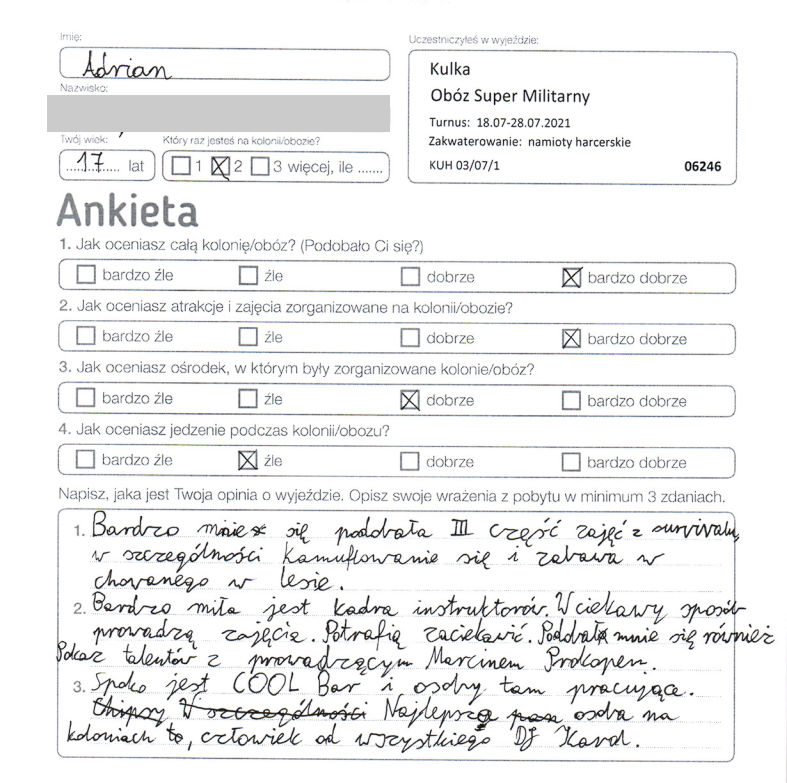 Imię:
Adrian
Nazwisko:
Twój wiek:
17 lat
Który raz jesteś na kolonii/obozie?
1 2 3 więcej, ile .......
Uczestniczyłeś w wyjeździe:
Kulka
Obóz Super Militarny
Turnus: 18.07-28.07.2021
Zakwaterowanie: namioty harcerskie
KUH 03/07/1 06246
Ankieta
1. Jak oceniasz całą kolonię/obóz? (Podobało Ci się?)
bardzo źle źle dobrze bardzo dobrze
2. Jak oceniasz atrakcje i zajęcia zorganizowane na kolonii/obozie?
bardzo źle źle dobrze bardzo dobrze
3. Jak oceniasz ośrodek, w którym były zorganizowane kolonie/obóz?
bardzo źle źle dobrze bardzo dobrze
4. Jak oceniasz jedzenie podczas kolonii/obozu?
bardzo źle źle dobrze bardzo dobrze
Napisz, jaka jest Twoja opinia o wyjeździe. Opisz swoje wrażenia z pobytu w minimum 3 zdaniach.
1. Bardzo mnie się podobała III część zajęć z survivalu,
w szczególności kamuflowanie się i zabawa w
chowanego w lesie.
2. Bardzo miła jest kadra instruktorów. W ciekawy sposób
prowadzą zajęcia. Potrafią zaciekawić. Podobał mnie się również
Pokaz talentów z prowadzącym Marcinem Prokopen.
3. Spoko jest COOL Bar i osoby tam pracujące.
Chipsy W szczególności Najlepszą osoba na
koloniach to, człowiek od wszystkiego DJ Karol.